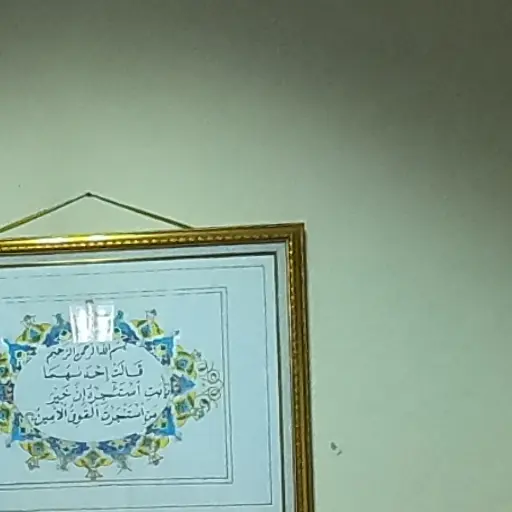 بسم الله الرحمن الرحيم
قَالَتْ إِحْدَىٰهُمَا
يَٰأَبَتِ اسْتَـْٔجِرْهُ إِنَّ خَيْرَ
مَنِ اسْتَـْٔجَرْتَ الْقَوِىُّ الْأَمِينُ